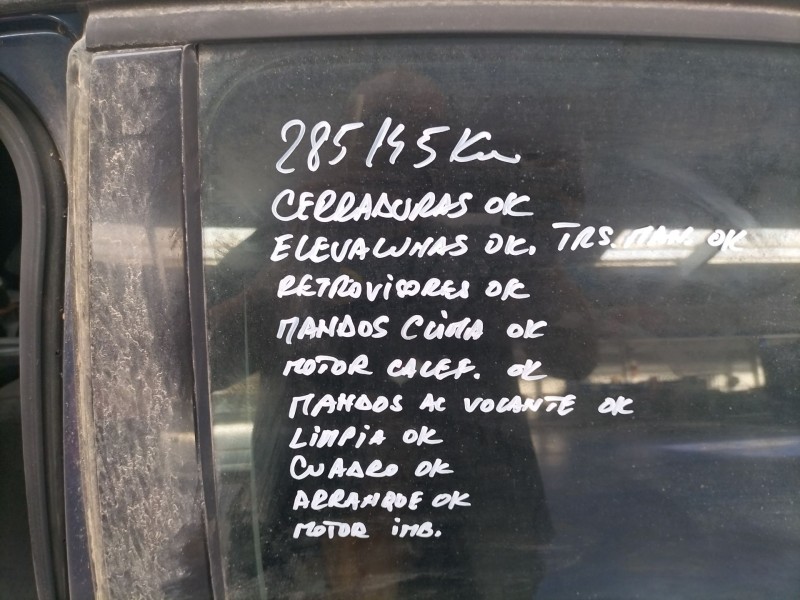 285145 Km
CERRADURAS OK
ELEVALUNAS OK. TRS. MAN. OK
RETROVISORES OK
MANDOS CLIMA OK
MOTOR CALEF. OK
MANDOS AL VOLANTE OK
LIMPIA OK
CUADRO OK
ARRANQUE OK
MOTOR IMB.